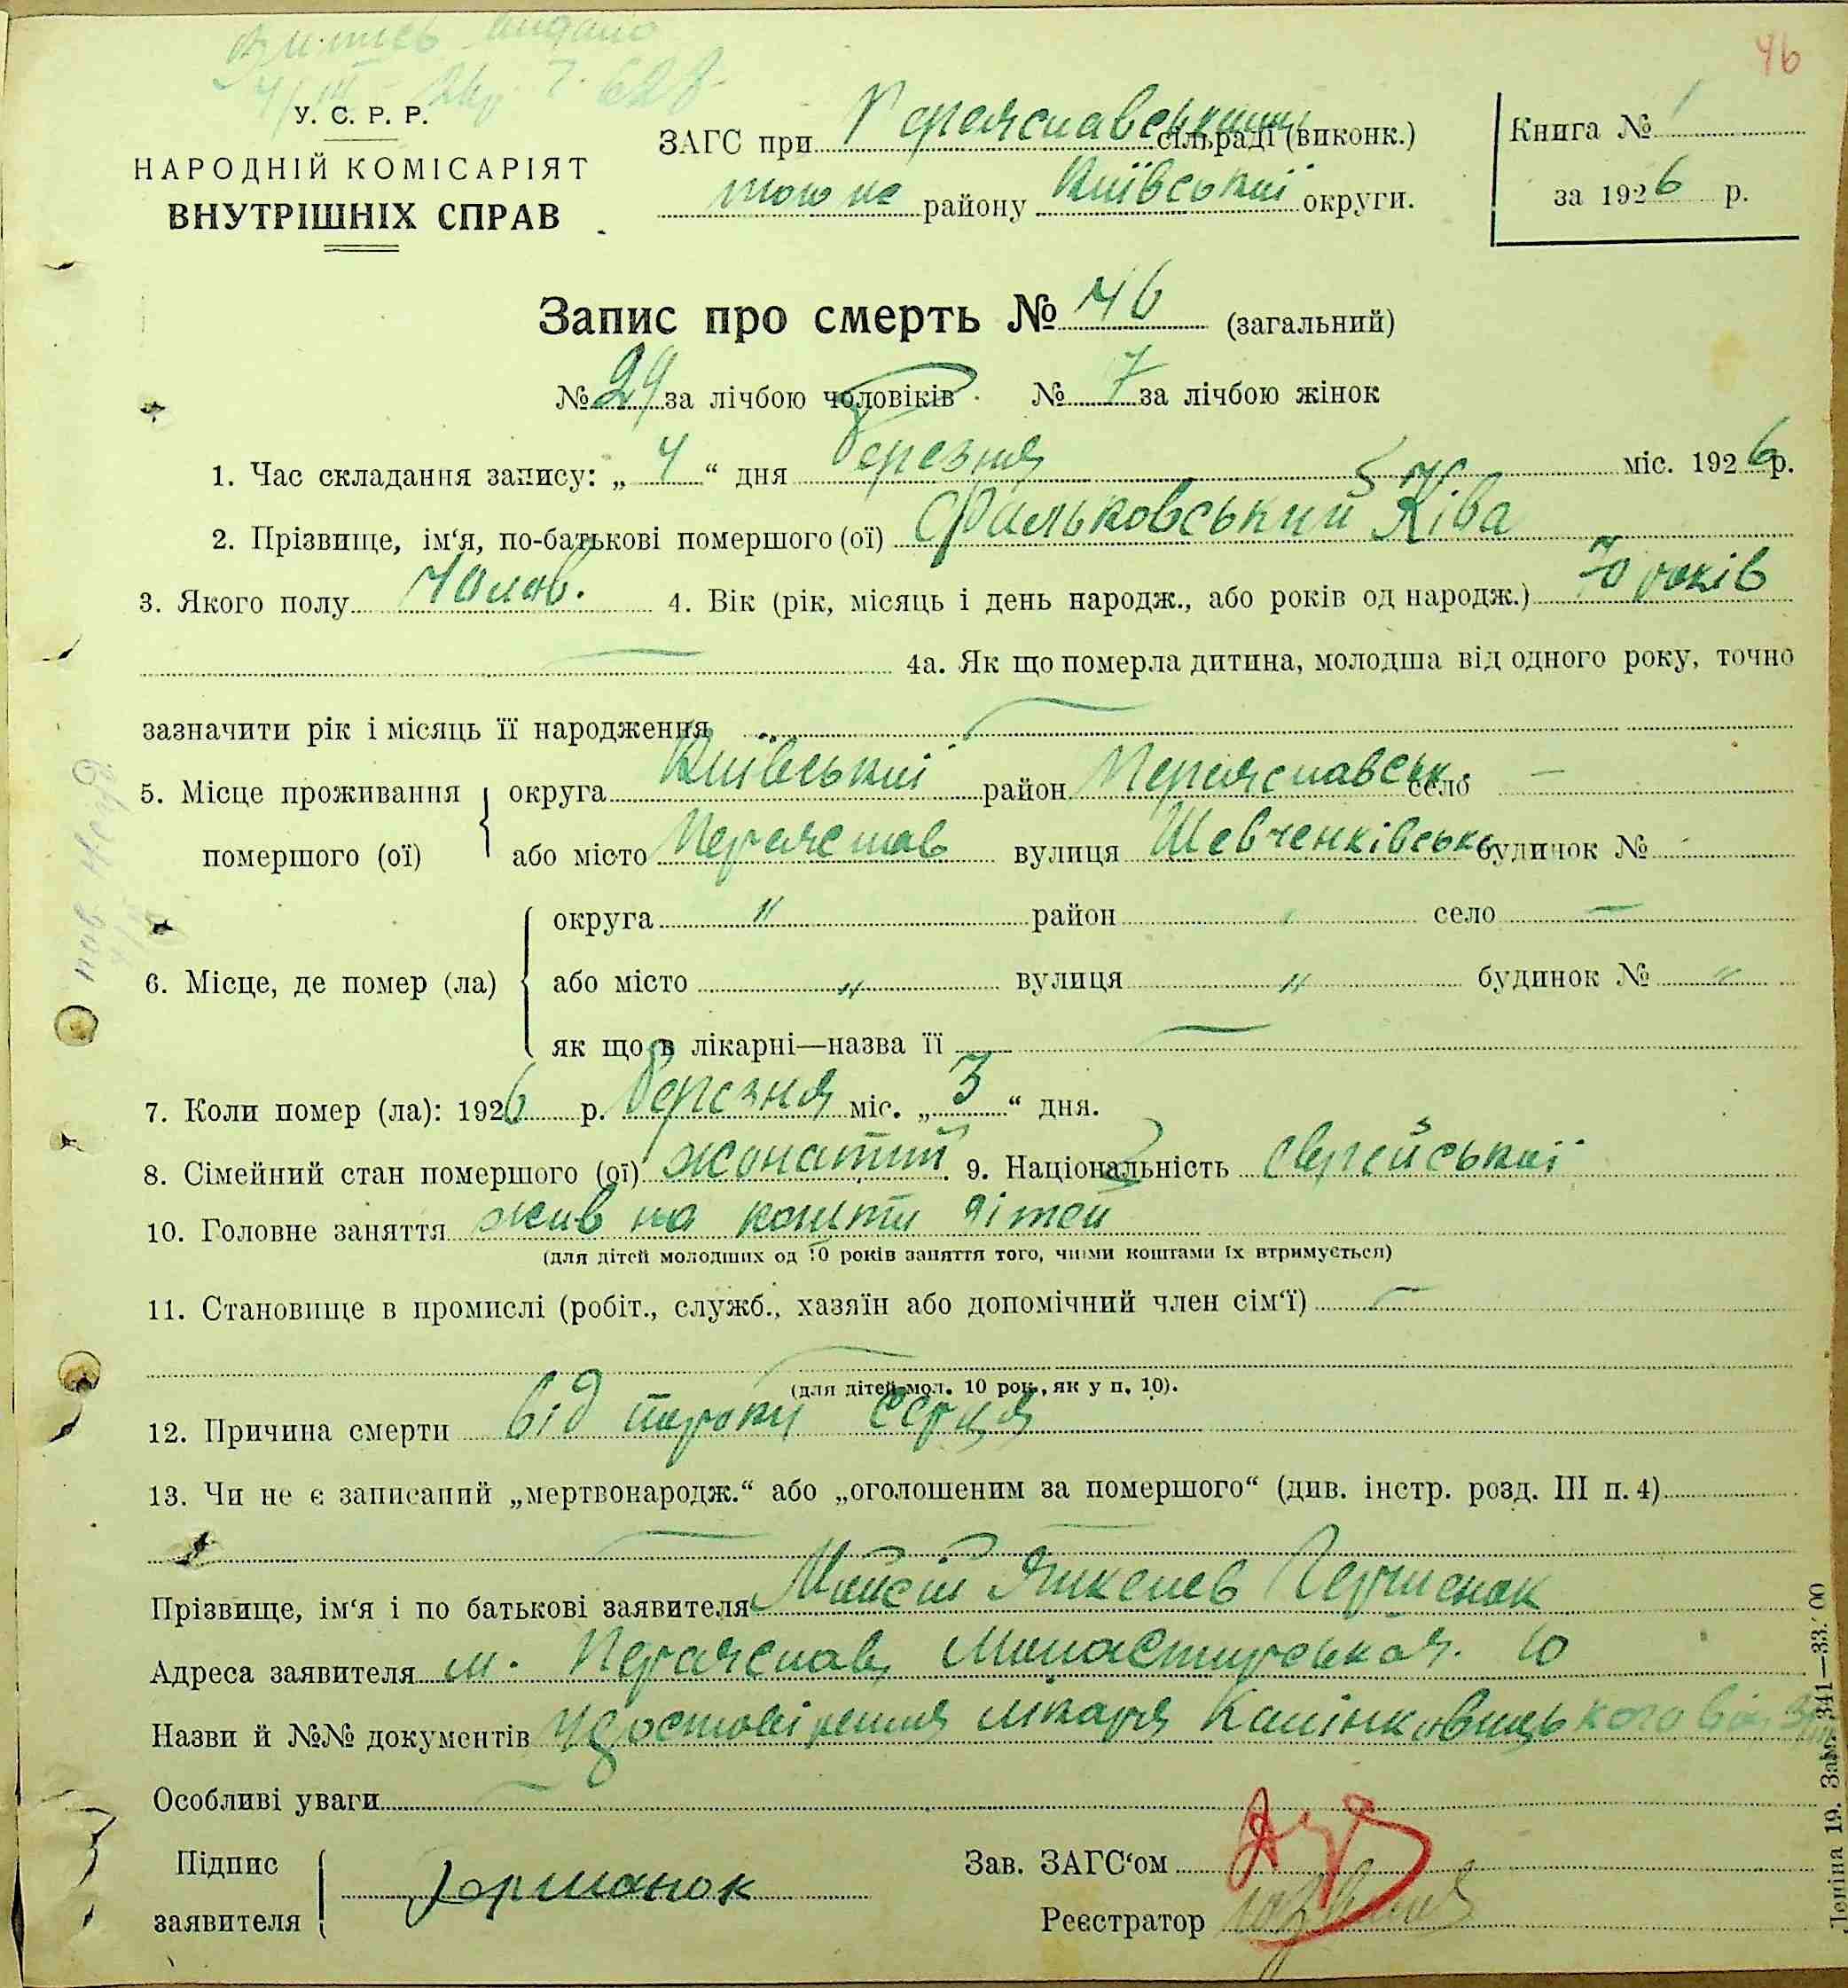 Витяг видано
46
У. С. Р. Р.
НАРОДНІЙ КОМІСАРІЯТ
ВНУТРІШНІХ СПРАВ
ЗАГС при Переяславському сільраді (виконк.)
того же району Київської округи.
Книга № 1
за 1926 р.
Запис про смерть № 46 (загальний)
№ 29 за лічбою чоловіків. № 7 за лічбою жінок
1. Час складання запису: „ 4 “ дня березня міс. 1926 р.
2. Прізвище, ім‘я, по-батькові помершого (ої) Фальковський Ківа
3. Якого полу Чолов. 4. Вік (рік, місяць і день народж., або років од народж.) 70 років
4а. Як що померла дитина, молодша від одного року, точно
зазначити рік і місяць її народження
5. Місце проживання помершого (ої)
округа Київської район Переяславськ. село —
або місто Переяслав вулиця Шевченківськ будинок №
6. Місце, де помер (ла)
округа " район " село —
або місто " вулиця " будинок № "
як що в лікарні—назва її —
7. Коли помер (ла): 1926 р. березня міс. „ 3 “ дня.
8. Сімейний стан помершого (ої) жонатий. 9. Національність єврейської
10. Головне заняття жив на кошти дітей
(для дітей молодших од 10 років заняття того, чиїми коштами їх втримується)
11. Становище в промислі (робіт., служб., хазяїн або допомічний член сім‘ї) —
(для дітей мол. 10 рок., як у п. 10).
12. Причина смерти від пороку серця
13. Чи не є записаний „мертвонародж.“ або „оголошеним за помершого“ (див. інстр. розд. III п. 4)
Прізвище, ім‘я і по батькові заявителя Мойсій
Адреса заявителя м. Переяслав, Монастирська 10
Назви й №№ документів удостовірення лікаря
Особливі уваги
Підпис заявителя
Зав. ЗАГС‘ом
Реєстратор
Леніна 19. Зам. 341—33.000